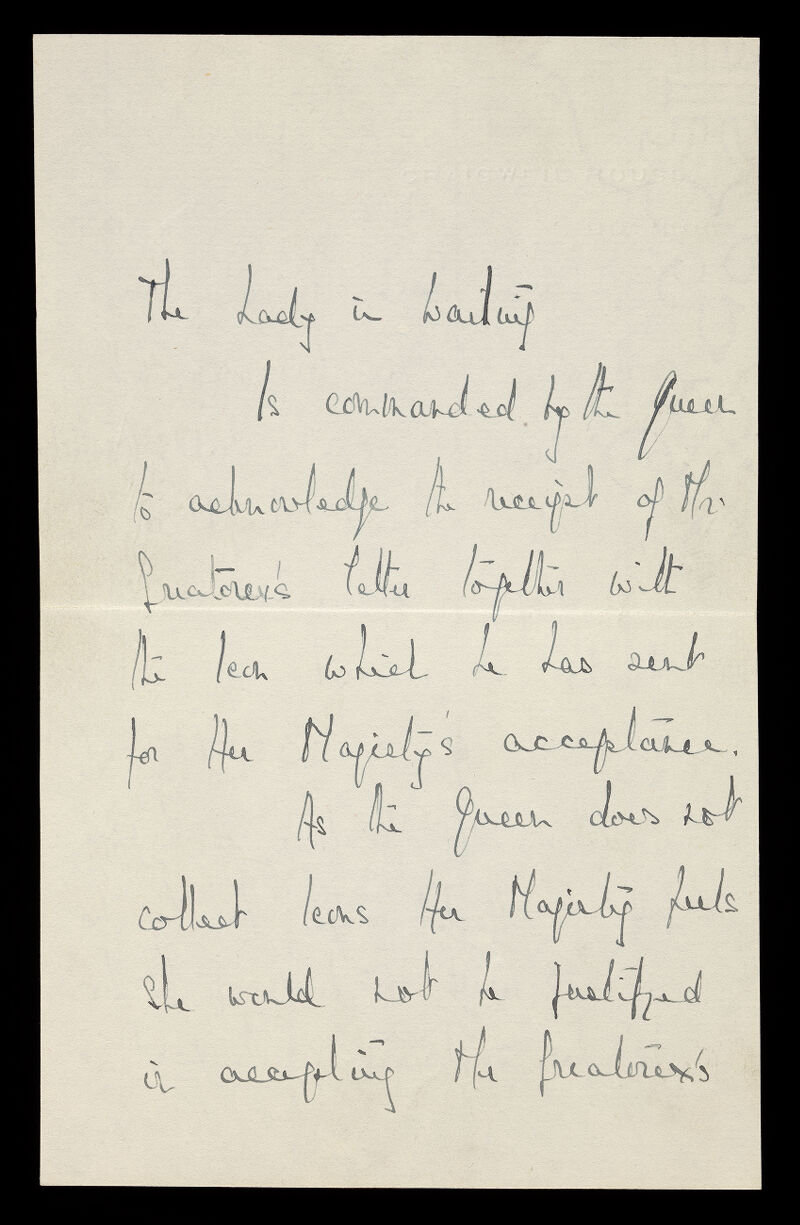 CRAIGWEIL HOUSE
The Lady in Waiting
Is commanded by the Queen
to acknowledge the receipt of Mr.
Greatorex's letter together with
the Icon which he has sent
for Her Majesty's acceptance.
As the Queen does not
collect Icons Her Majesty feels
she would not be justified
in accepting Mr Greatorex's